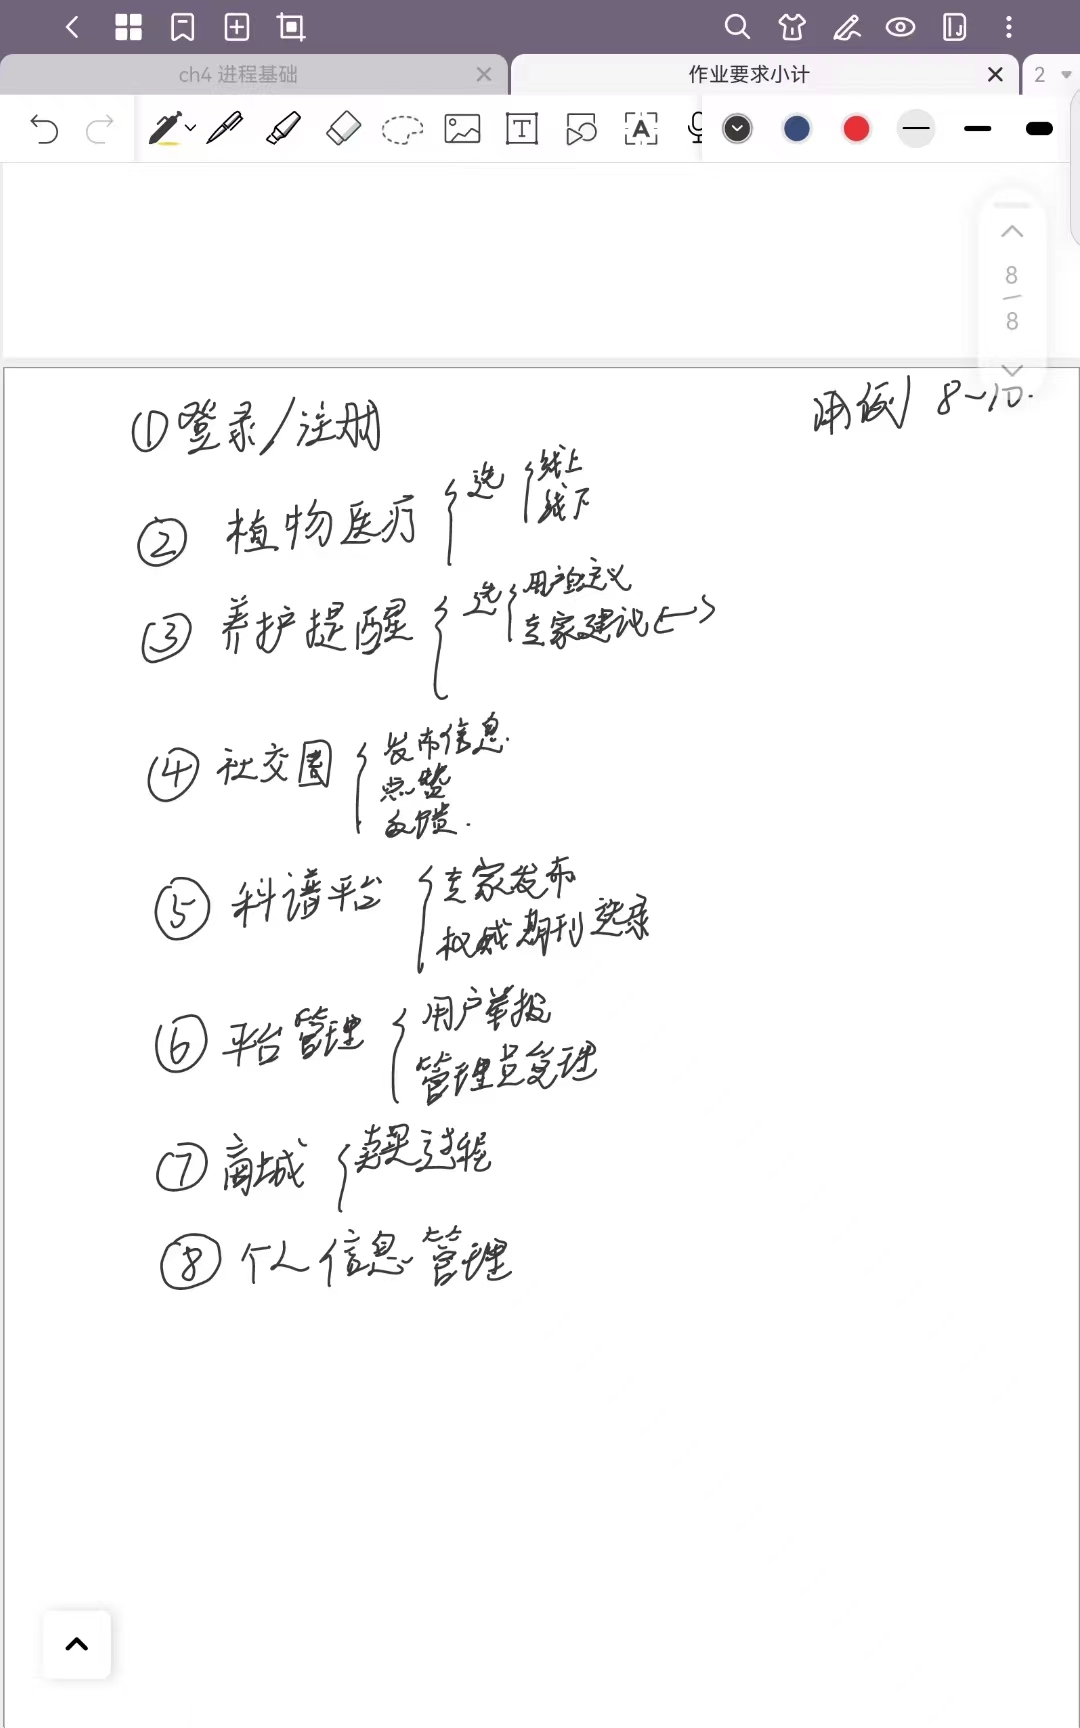 ch4 进程基础
作业要求小计
2
8
8
用例 8~10.
①登录/注册
②植物医疗 选 线上
线下
③养护提醒 选 用户自定义
专家建议
④社交圈 发布信息.
点赞
反馈.
⑤科谱平台 专家发布
权威期刊选录
⑥平台管理 用户举报
管理员受理
⑦商城 卖买过程
⑧个人信息管理